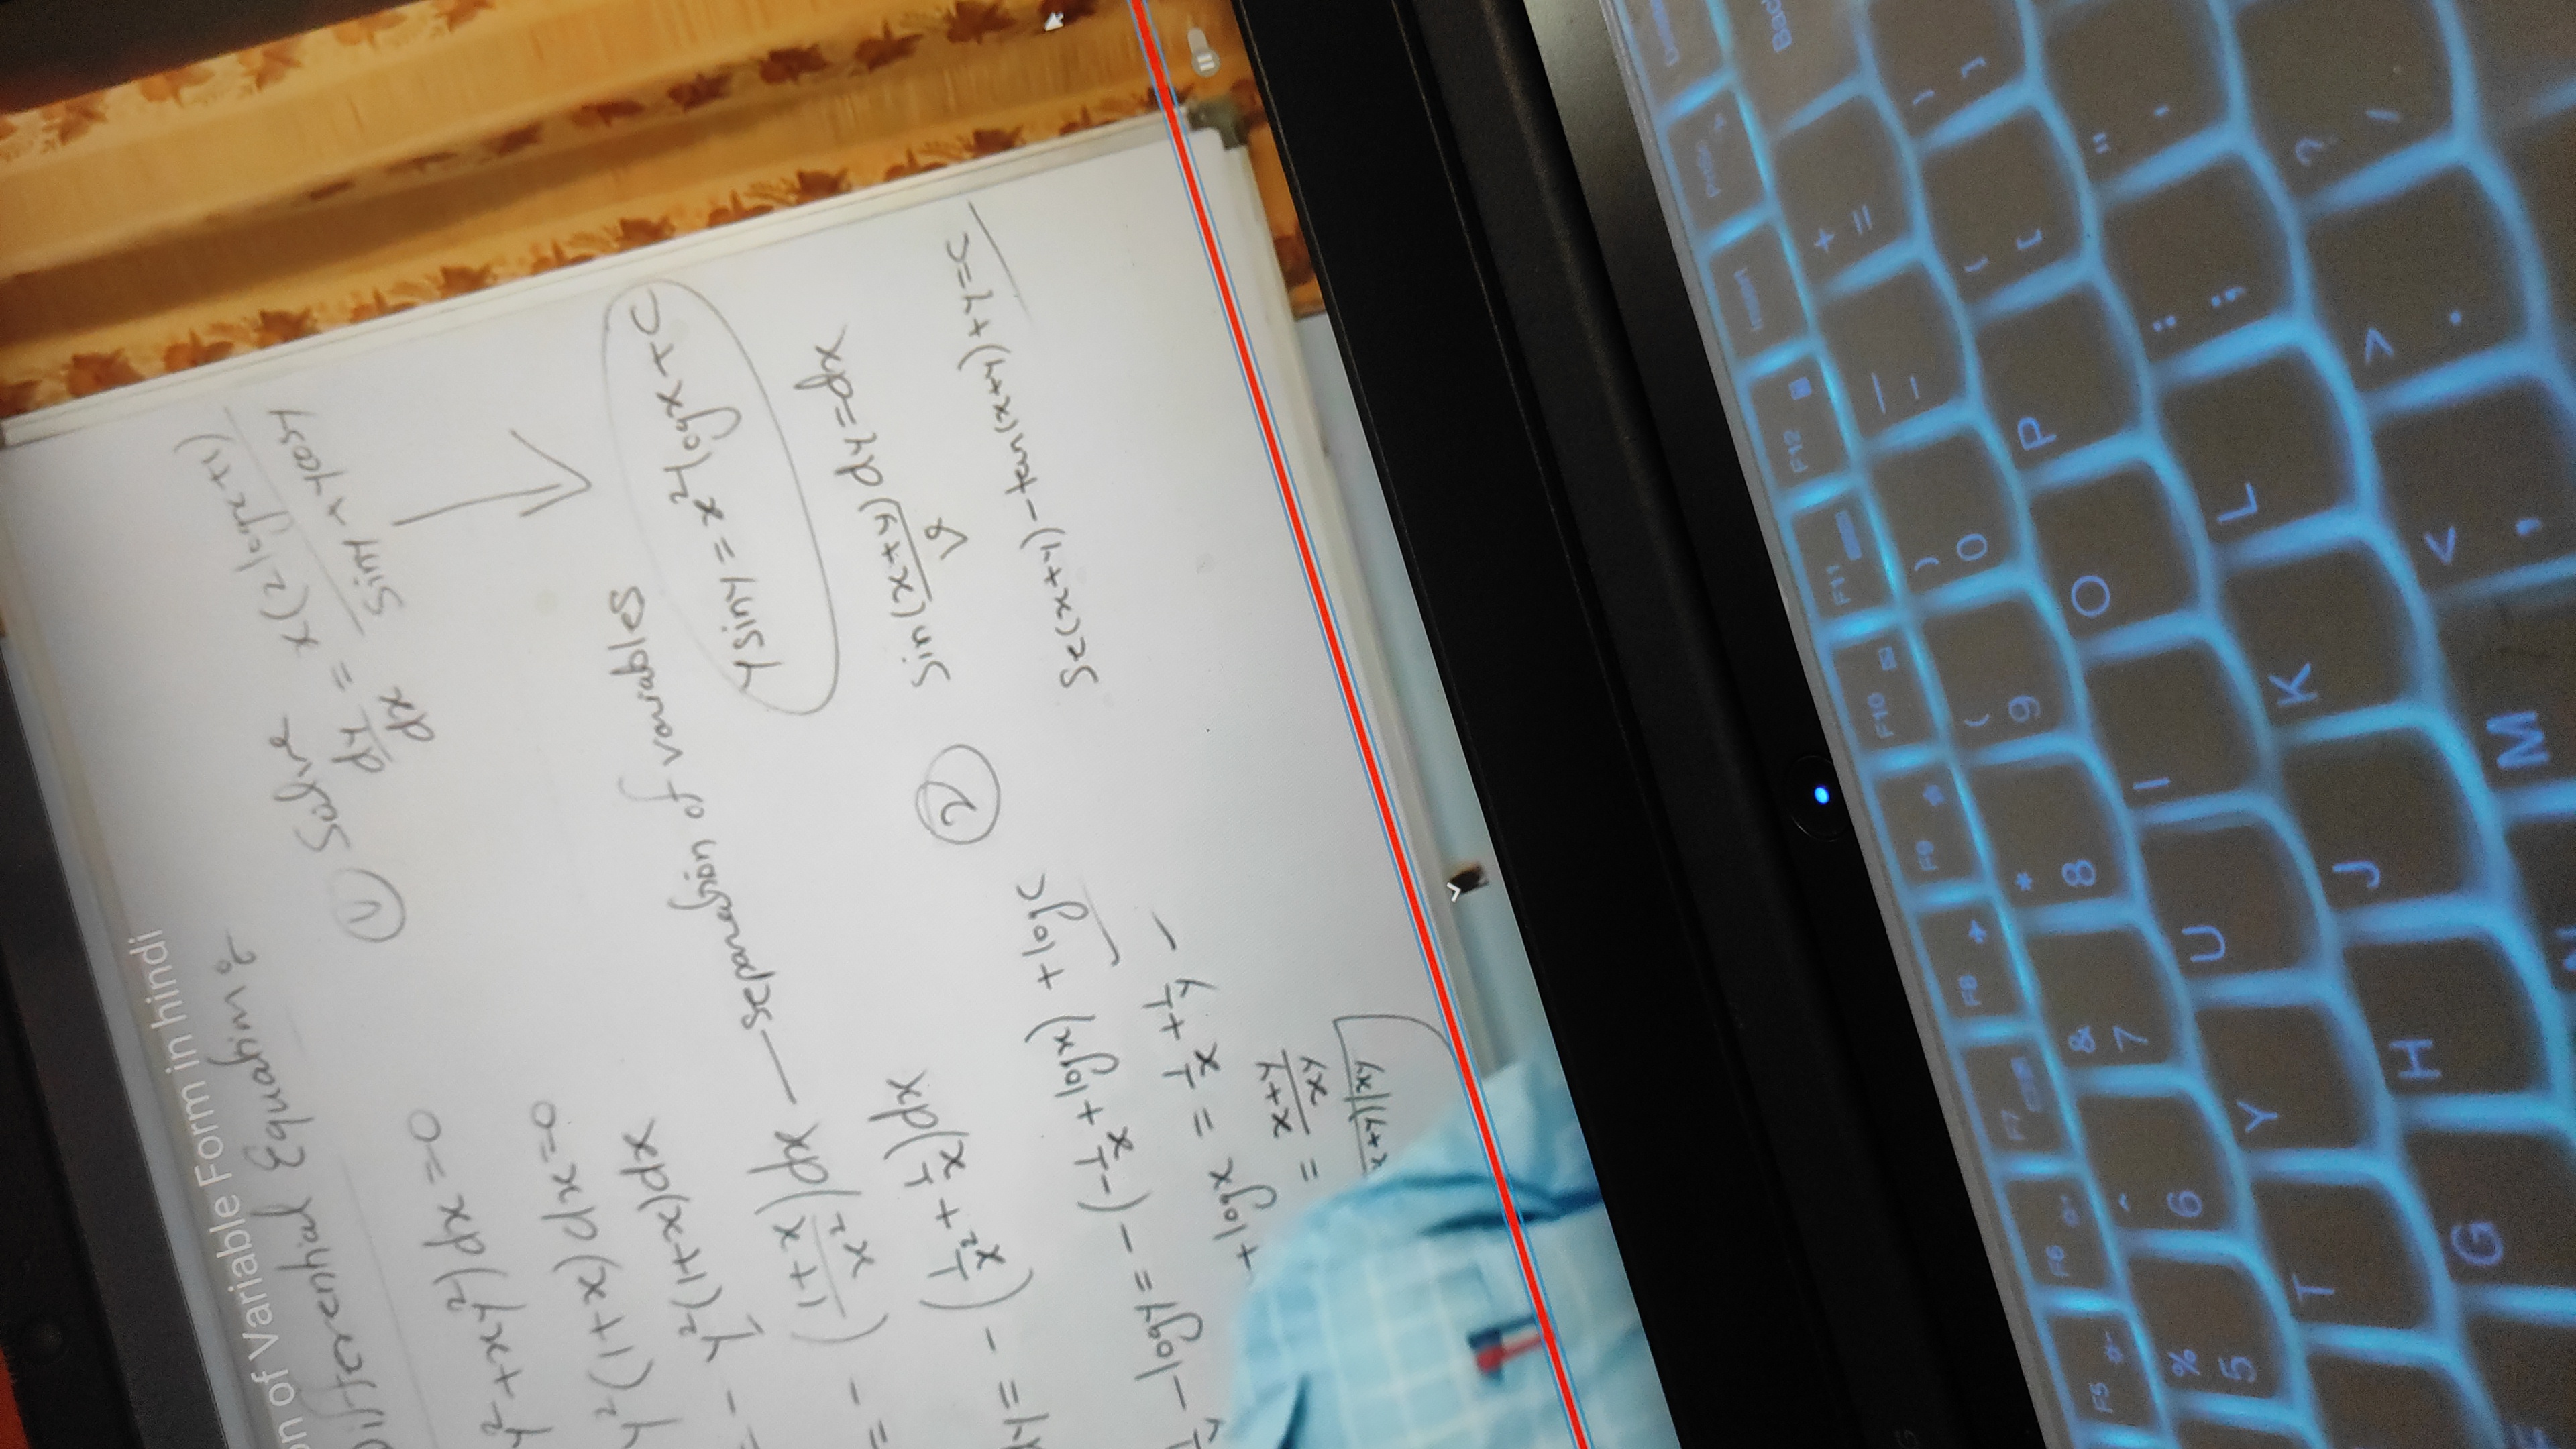 on of Variable Form in hindi
Differential Equation:
y²+xy²)dx=0
y²(1+x)dx=0
= - y²(1+x)dx
= - (1+x/x²)dx — separation of variables
dy= - (1/x² + 1/x)dx
1/y - logy = -(-1/x + logx) + logc
+logx = 1/x + 1/y
= x+y/xy
x+y)/xy
① Solve
dy/dx = x(2logx+1)/siny+ycosy
ysiny = x²logx+c
② Sin(x+y)dy=dx
v
Se(x+y)-tan(x+y)+y=c
F5 F6 F7 F8 F9 F10 F11 F12 Insert PrtSc
% 5 ^ 6 & 7 * 8 ( 9 ) 0 — - + = Bac
T Y U I O P { [ } ]
G H J K L : ; " '
M < , > . ? /